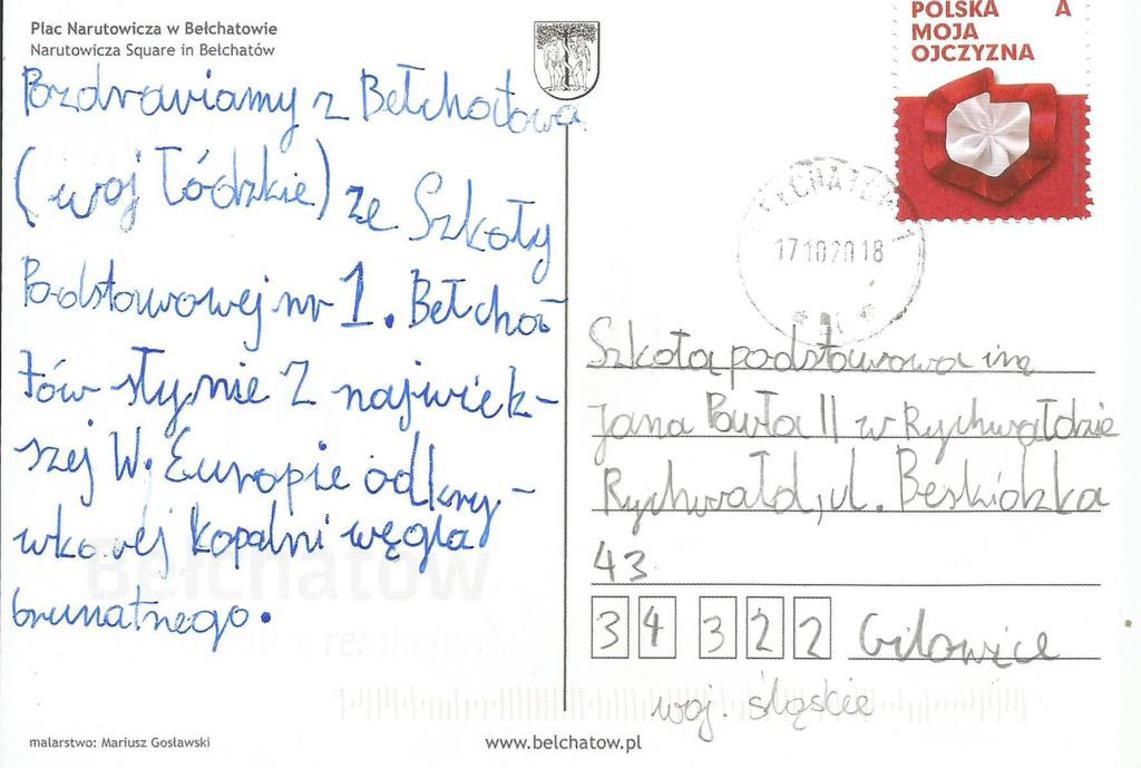 Plac Narutowicza w Bełchatowie
Narutowicza Square in Bełchatów
Pozdrawiamy z Bełchatowa
(woj łódzkie) ze Szkoły
Podstawowej nr 1. Bełcha-
tów słynie z najwięk-
szej W. Europie odkry-
wkowej kopalni węgla
brunatnego.
malarstwo: Mariusz Gosławski
www.belchatow.pl
POLSKA A
MOJA
OJCZYZNA
BEŁCHATÓW 1
17102018
Szkoła podstawowa im
Jana Pawła II w Rychwałdzie
Rychwałd, ul. Beskidzka
43
34 322 Gilowice
woj. śląskie
Bełchatów